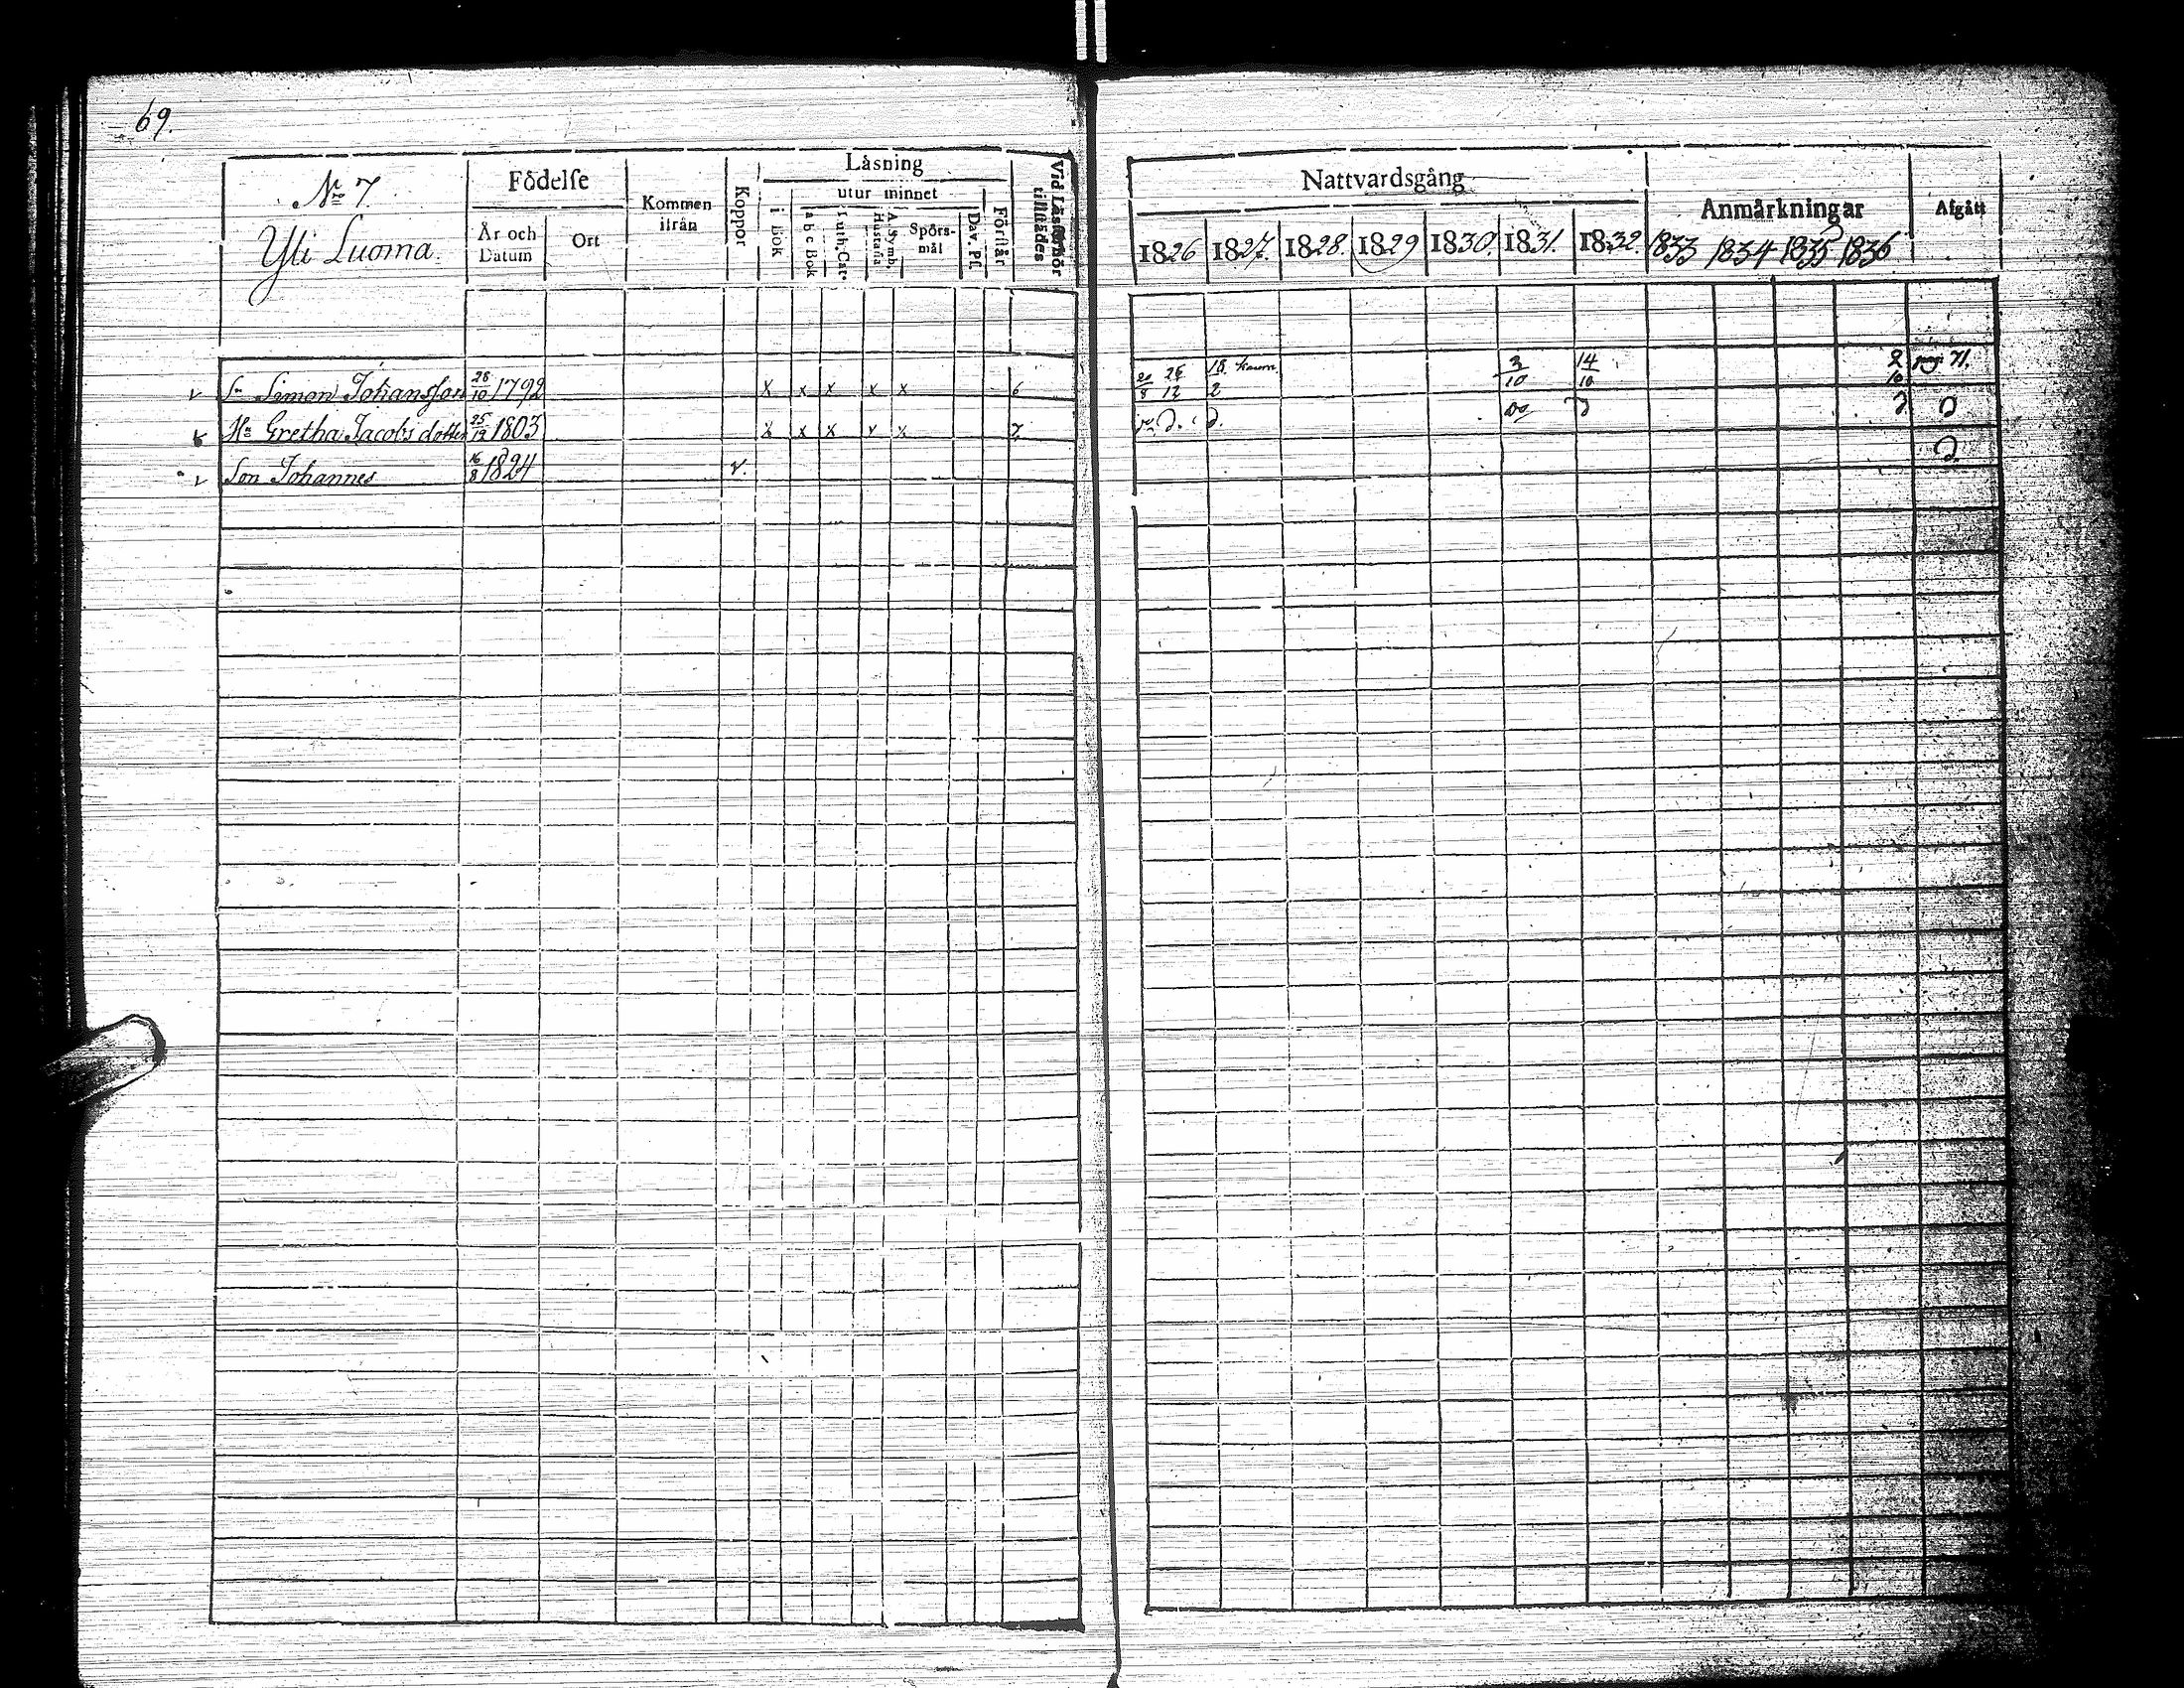 69.
No 7.
Yli Luoma.
Födelse
År och Datum
Ort
Kommen ifrån
Koppor
Läsning
i Bok
utur minnet
a b c Bok
Luth. Cat.
Hustafla
A. Symb.
Spörs-mål
Dav. Ps.
Förstår
Vid Läsförhör tillstädes
Nattvardsgång
1826 1827. 1828. 1829 1830. 1831. 1832.
Anmärkningar
1833 1834 1835 1836
Afgått
v Sn Simon Johansson 26/10 1792 x x x x x 6 20/8 26/12 18/2 3/10 14/10 2/10 71.
Hu Gretha Jacobs dotter 25/12 1803 x x x v x 7. D. D. Do D D D
v Son Johannes 16/8 1824 v. D.